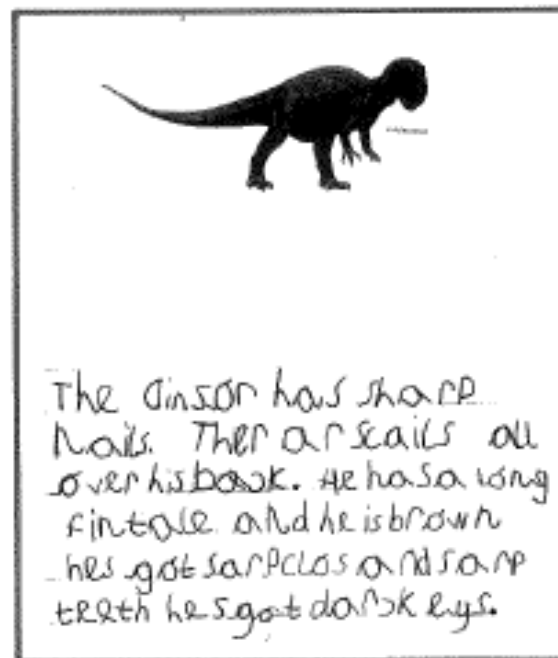 The dinsor has sharp
nails. Ther ar scails all
over his back. He has a long
fin tale and he is brown
hes got sarp clos and sarp
teeth hes got darsk eys.